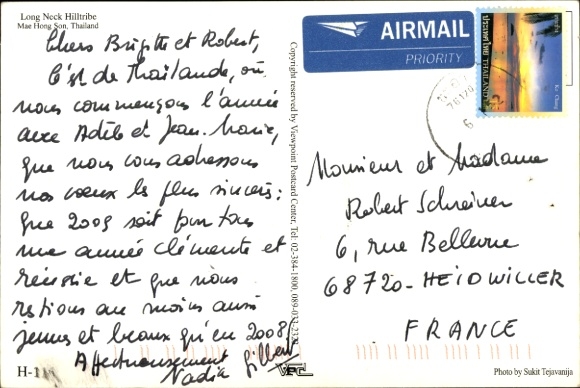 Long Neck Hilltribe
Mae Hong Son, Thailand
Chers Brigitte et Robert,
C'est de Thaïlande, où
nous commençons l'année
avec Adèle et Jean-Marie,
que nous vous adressons
nos voeux les plus sincères :
que 2009 soit pour tous
une année clémente et
réussie et que nous
restions au moins aussi
jeunes et beaux qu'en 2008!
Affectueusement
Nadia Gilbert
H-11
Copyright reserved by Viewpoint Postcard Center, Tel: 02-384-1800, 089-
VPC
AIRMAIL
PRIORITY
THAILAND
Ko Chang
Monsieur et Madame
Robert Schreiner
6, rue Bellevue
68720-HEIDWILLER
FRANCE
Photo by Sukit Tejavanija